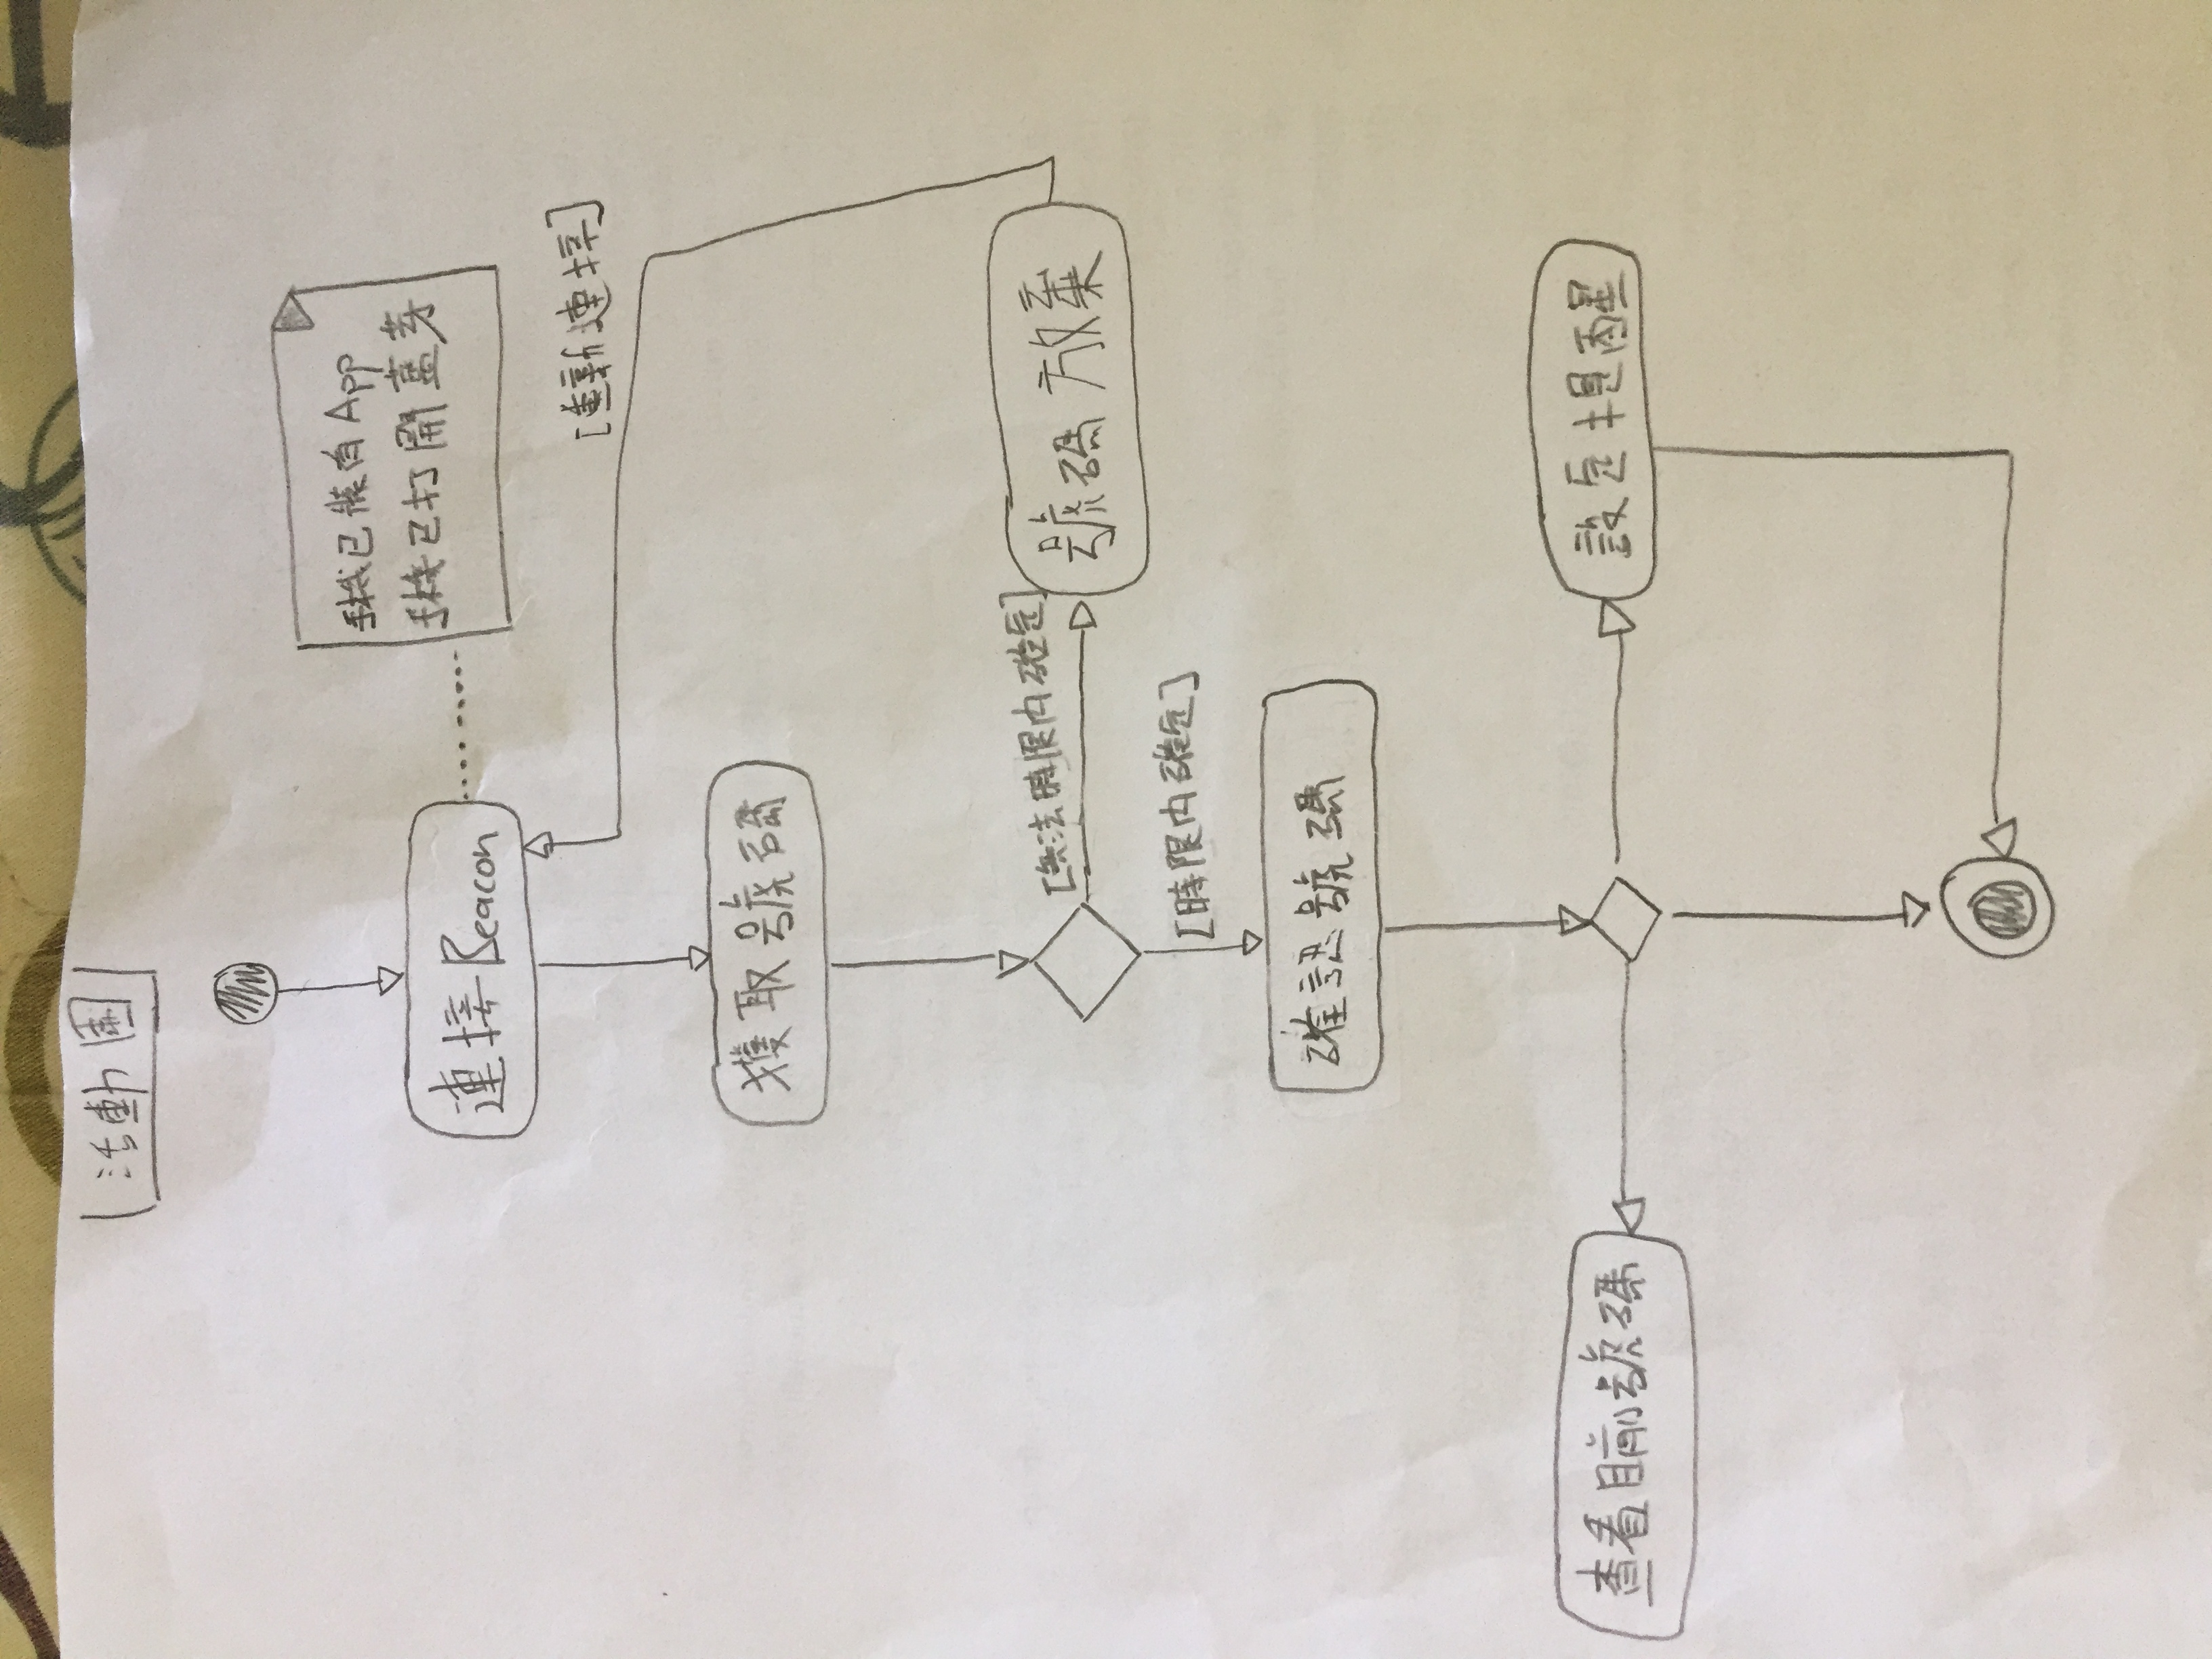 活動圖
手機已裝有App
手機已打開藍芽
連接Beacon
[重新連接]
獲取號碼
[無法時限內確定]
號碼放棄
[時限內確定]
確認號碼
查看目前號碼
設定提醒